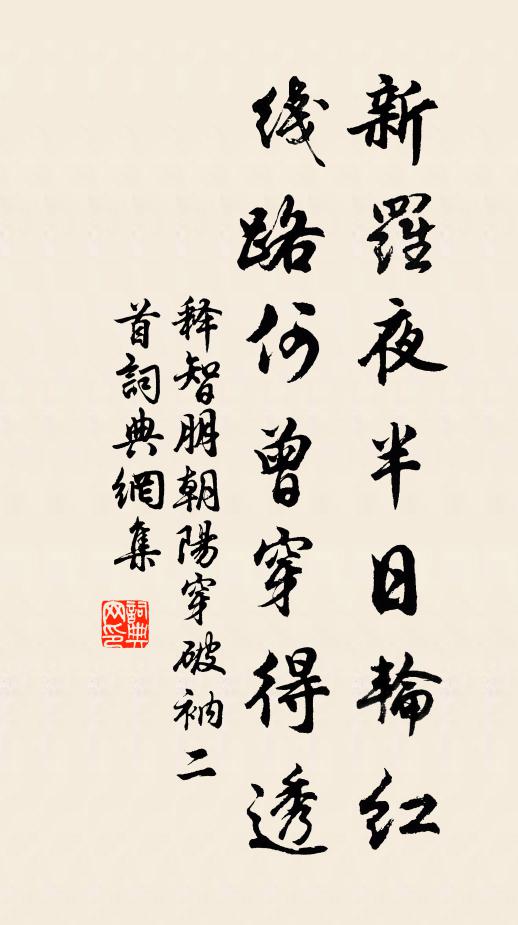 新羅夜半日輪红
线路何曾穿得透
释智朋朝陽穿破衲二
首詞典網集
詞典网印